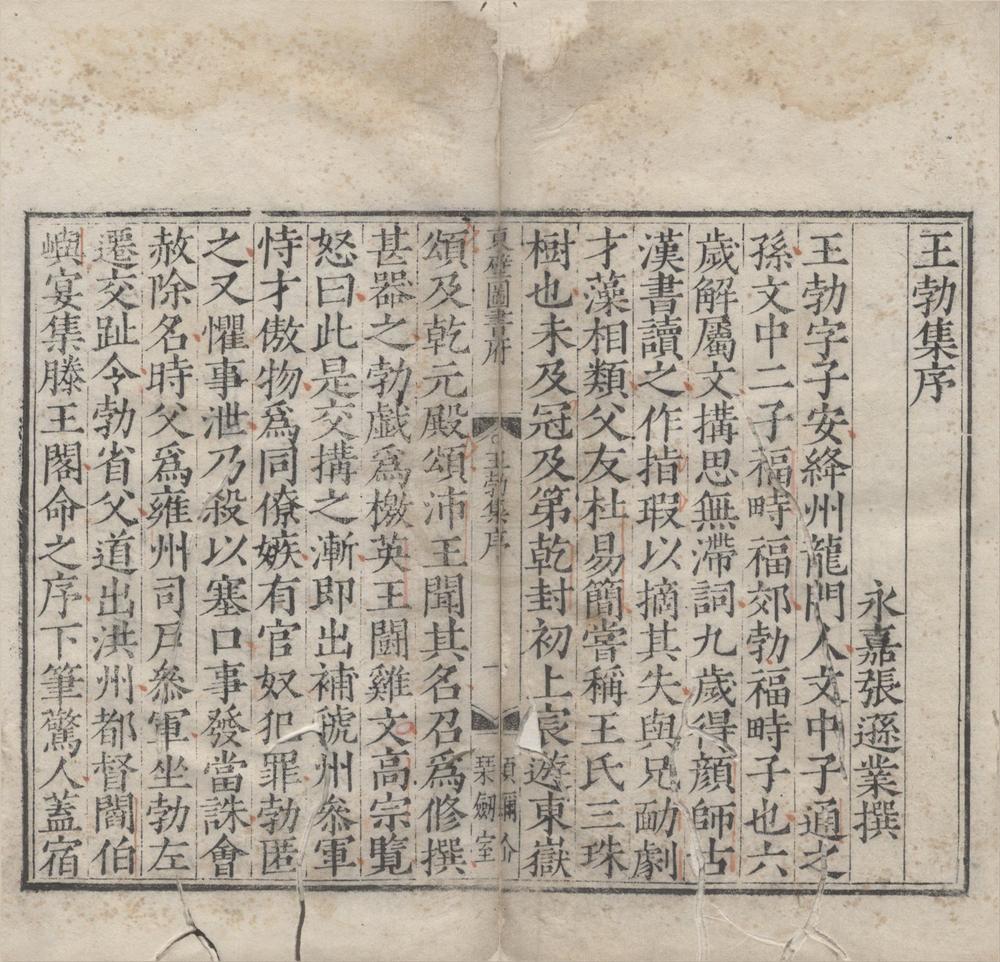 王勃集序
永嘉張遜業撰
王勃字子安絳州龍門人文中子通之
孫文中二子福畤福郊勃福畤子也六
歲解屬文搆思無滯詞九歲得顏師古
漢書讀之作指瑕以摘其失與兄勔劇
才藻相類父友杜易簡嘗稱王氏三珠
樹也未及冠及第乾封初上宸遊東嶽
東壁圖書府
王勃集序
一
項彌介
栞劒室
頌及乾元殿頌沛王聞其名召爲修撰
甚器之勃戲爲檄英王鬪雞文高宗覽
怒曰此是交搆之漸即出補虢州叅軍
恃才傲物爲同僚嫉有官奴犯罪勃匿
之又懼事泄乃殺以塞口事發當誅會
赦除名時父爲雍州司戶叅軍坐勃左
遷交趾令勃省父道出洪州都督閻伯
嶼宴集滕王閣命之序下筆驚人蓋宿